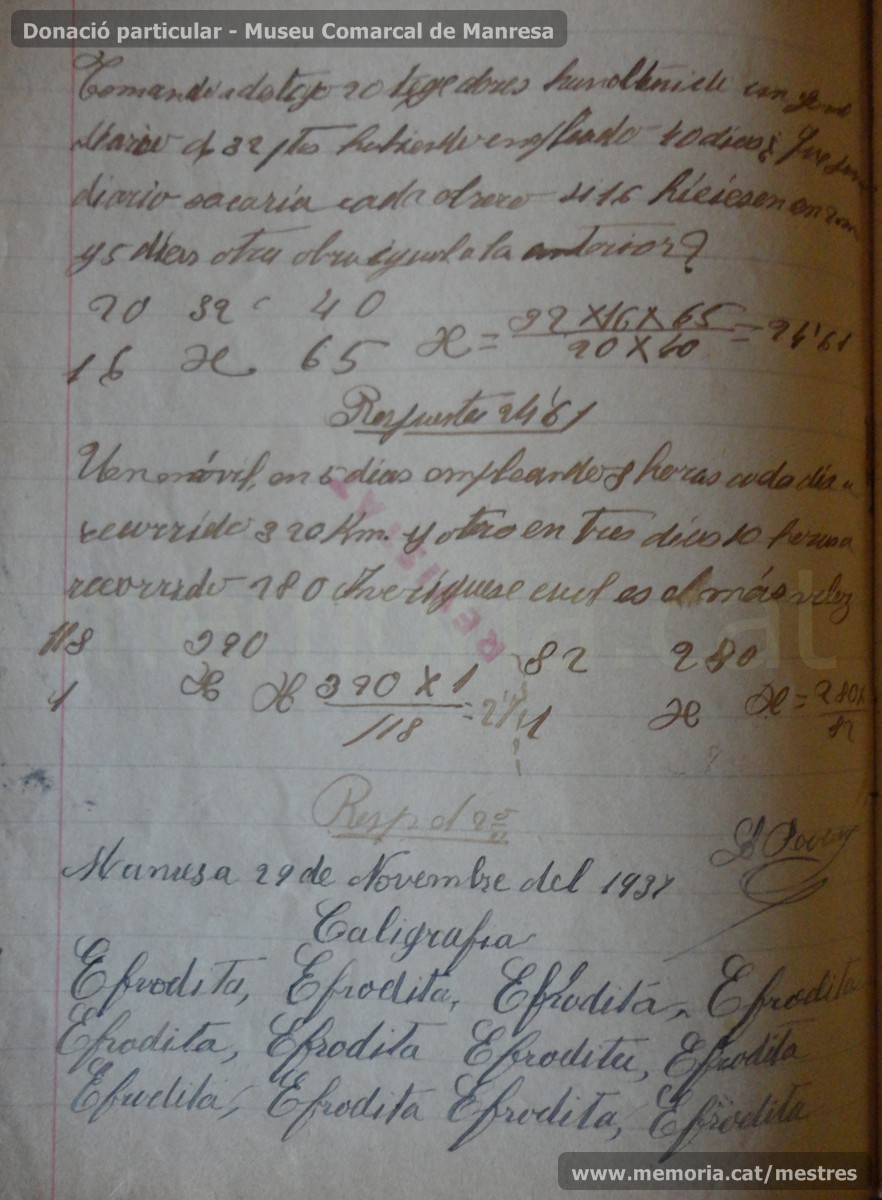 Donació particular - Museu Comarcal de Manresa
20 tegedores han obtenido con
diario de 32 ptas habiendo empleado 40 dias ¿Que
diario sacaria cada obrero si 16 hiciesen en
y 5 dias otra obra igual a la anterior?
20 32 40
16 x 65 x = 32 X 16 X 65 / 20 X 40 = 24'61
Respuesta 24'61
Un móvil, en 5 dias empleando 8 horas cada dia a
recurrido 320 Km. y otro en tres dias 10 horas a
recorrido 280 Averiguese cual es el más veloz
118 390 82 280
1 x x 390 X 1 / 118 = 2' 1 x x = 280 / 82
REVISTA
Resp
Manresa 29 de Novembre del 1937
Caligrafia
Efrodita, Efrodita, Efrodita, Efrodita
Efrodita, Efrodita Efrodita, Efrodita
Efrodita, Efrodita Efrodita, Efrodita
www.memoria.cat/mestres